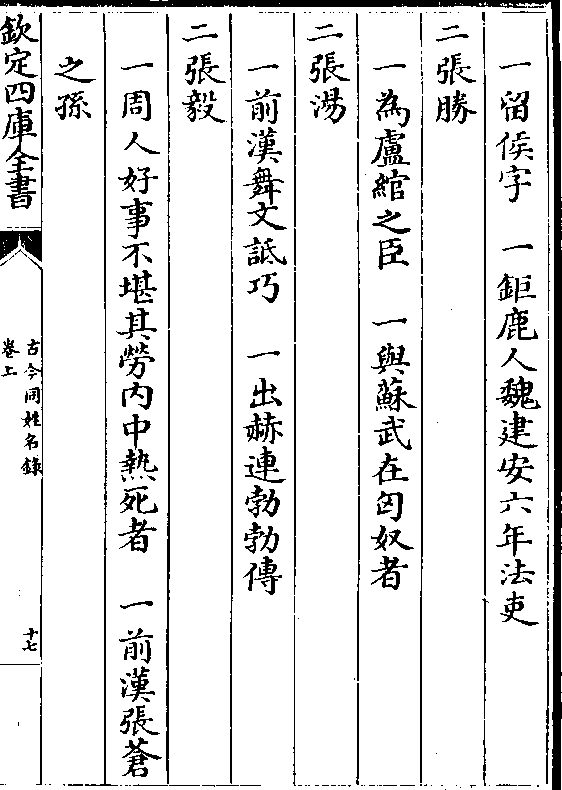 一留侯字　一鉅鹿人魏建安六年法吏
二張勝
一為盧綰之臣　一與蘇武在匈奴者
二張湯
一前漢舞文詆巧　一出赫連勃勃傳
二張毅
一周人好事不堪其勞內中熱死者　一前漢張蒼
之孫
欽定四庫全書
古今同姓名錄
卷上
十七